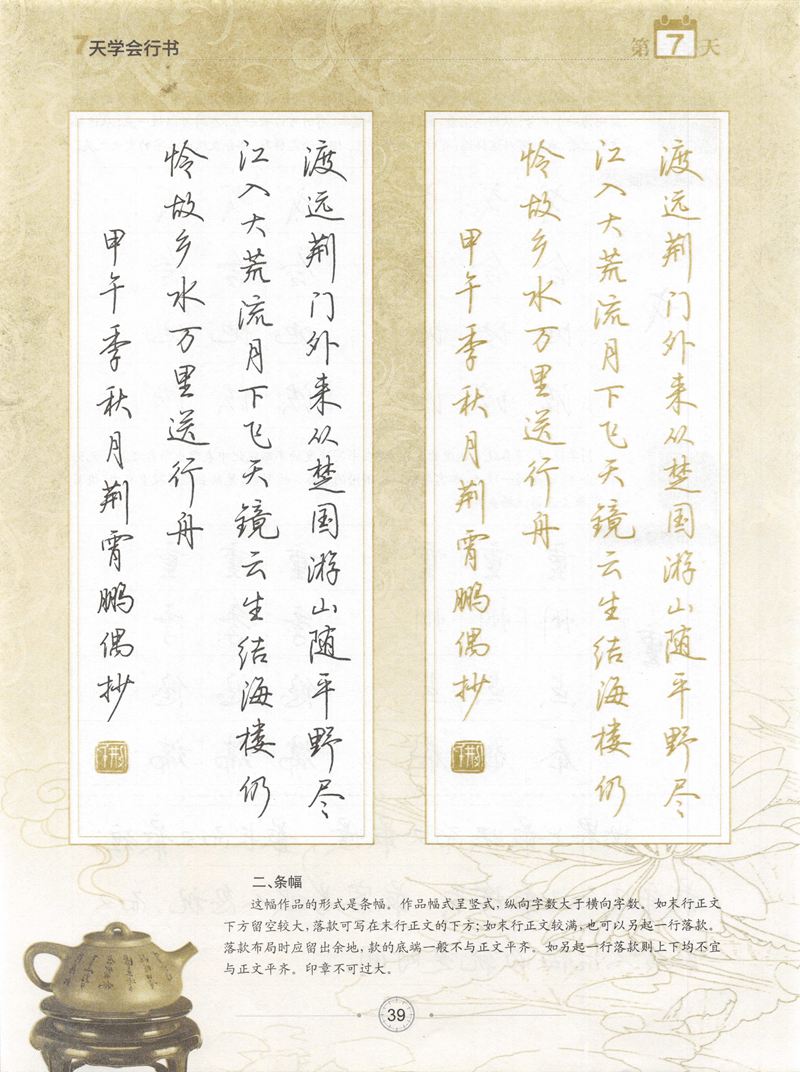 7天学会行书
第7天
渡远荆门外来从楚国游山随平野尽
江入大荒流月下飞天镜云生结海楼仍
怜故乡水万里送行舟
甲午季秋月荆霄鹏偶抄
渡远荆门外来从楚国游山随平野尽
江入大荒流月下飞天镜云生结海楼仍
怜故乡水万里送行舟
甲午季秋月荆霄鹏偶抄
二、条幅
这幅作品的形式是条幅。作品幅式呈竖式,纵向字数大于横向字数。如末行正文
下方留空较大,落款可写在末行正文的下方;如末行正文较满,也可以另起一行落款。
落款布局时应留出余地,款的底端一般不与正文平齐。如另起一行落款则上下均不宜
与正文平齐。印章不可过大。
39